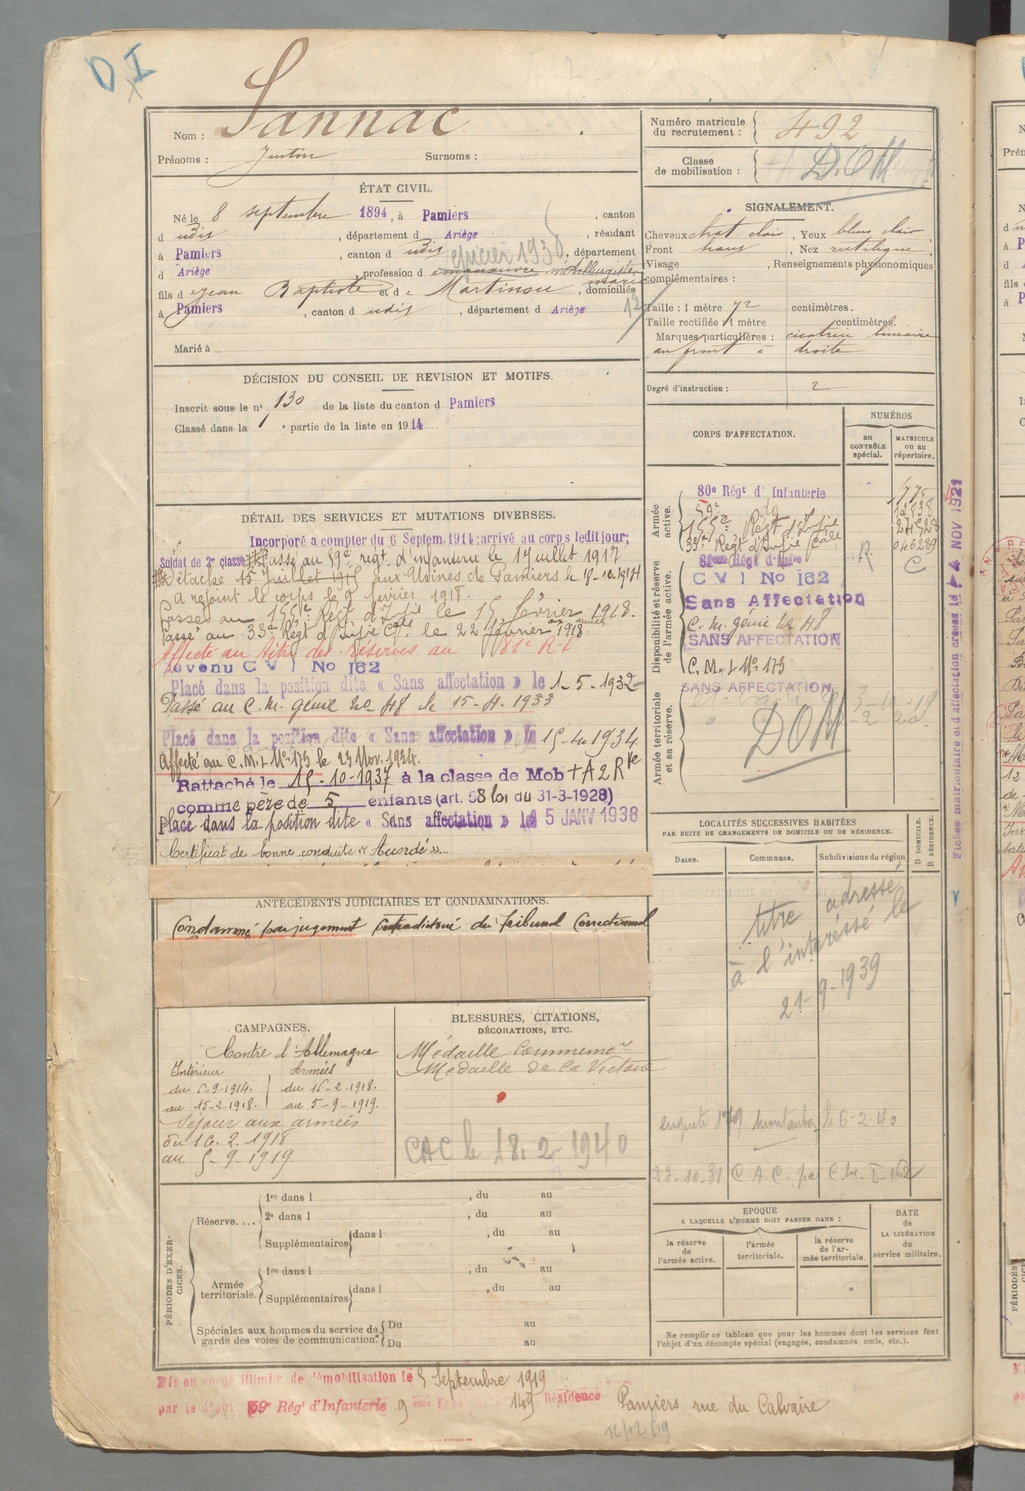 DI
Nom : Sannac
Prénoms : Justin Surnoms :
Numéro matricule du recrutement : 492
Classe de mobilisation : D.O.M.
ÉTAT CIVIL.
Né le 8 septembre 1894, à Pamiers, canton
d udis, département d Ariège, résidant
à Pamiers, canton d udis, département
d Ariège, profession de
épicier 1930
fils de Jean Baptiste et de Martinou, domiciliés
à Pamiers, canton d udis, département d Ariège
Marié à
SIGNALEMENT.
Cheveux chat clair, Yeux bleu clair
Front haut, Nez rectiligne
Visage, Renseignements physionomiques
complémentaires :
Taille : 1 mètre 72 centimètres.
Taille rectifiée 1 mètre centimètres.
Marques particulières : cicatrice linéaire
au front à droite
Degré d'instruction : 2
DÉCISION DU CONSEIL DE REVISION ET MOTIFS.
Inscrit sous le n° 130 de la liste du canton d Pamiers
Classé dans la 1 e partie de la liste en 1914
CORPS D'AFFECTATION.
NUMÉROS
au CONTRÔLE spécial.
MATRICULE ou au répertoire.
Armée active.
80e Régt d'Infanterie
59e do
155e Regt d'Infie
33e Regt d'Infie Cale
Disponibilité et réserve de l'armée active.
C V I No 162
Sans Affectation
C. M. génie No 48
SANS AFFECTATION
C. M. I. No 173
SANS AFFECTATION
Armée territoriale et sa réserve.
DOM
Fiches matriculaire et d'affectation créées le 4 NOV 1921
DÉTAIL DES SERVICES ET MUTATIONS DIVERSES.
Incorporé à compter du 6 Septem. 1914; arrivé au corps ledit jour;
Soldat de 2e classe Passé au 59e régt d'infanterie le 17 juillet 1917
Détaché aux Usines de Pamiers le
a rejoint le corps le 9 février 1918.
Passé au 155e Régt d'Infie le 15 février 1918.
Passé au 33e Régt d'Infie Cale le 22 février 1918.
Affecté au titre des réserves au 81e R.I.
devenu C V I No 162
Placé dans la position dite « Sans affectation » le 1-5-1932
Passé au C. M. génie No 48 le 15-4-1933
Placé dans la position dite « Sans affectation » le 15-4-1934
Affecté au C.M.I. No 173 le 23 Nov. 1934.
Rattaché le 15-10-1937 à la classe de Mob
comme père de 5 enfants (art. 58 loi du 31-3-1928)
Placé dans la position dite « Sans affectation » le 5 JANV 1938
Certificat de bonne conduite « Accordé »
LOCALITÉS SUCCESSIVES HABITÉES
PAR SUITE DE CHANGEMENTS DE DOMICILE OU DE RÉSIDENCE.
Dates. Communes. Subdivisions de région
D DOMICILE. R RÉSIDENCE.
titre adressé
à l'intéressé le
21-9-1939
enquête 179 Montauban le 6-2-40
ANTÉCÉDENTS JUDICIAIRES ET CONDAMNATIONS.
Condamné par jugement contradictoire du Tribunal Correctionnel
CAMPAGNES.
Contre l'Allemagne
Intérieur Armées
du 6-9-1914. du 16-2-1918.
au 15-2-1918. au 5-9-1919.
Séjour aux armées
du 16.2.1918
au 5-9-1919
BLESSURES, CITATIONS, DÉCORATIONS, ETC.
Médaille Commémo
Médaille de la Victoire
CAC le 18.2.1940
PÉRIODES D'EXERCICES.
Réserve....
1re dans l , du au
2e dans l , du au
Supplémentaires dans l , du au
Armée territoriale.
1re dans l , du au
Supplémentaires dans l , du au
Spéciales aux hommes du service de Du au
garde des voies de communication. Du au
EPOQUE
A LAQUELLE L'HOMME DOIT PASSER DANS :
la réserve de l'armée active.
l'armée territoriale.
la réserve de l'armée territoriale.
DATE de LA LIBÉRATION du service militaire.
Ne remplir ce tableau que pour les hommes dont les services font
l'objet d'un décompte spécial (engagés, condamnés, omis, etc.).
Mis en congé illimité de démobilisation le 5 Septembre 1919
par le dépôt 59e Régt d'Infanterie 9 eme 149 Résidence Pamiers rue du Calvaire
12/12/19